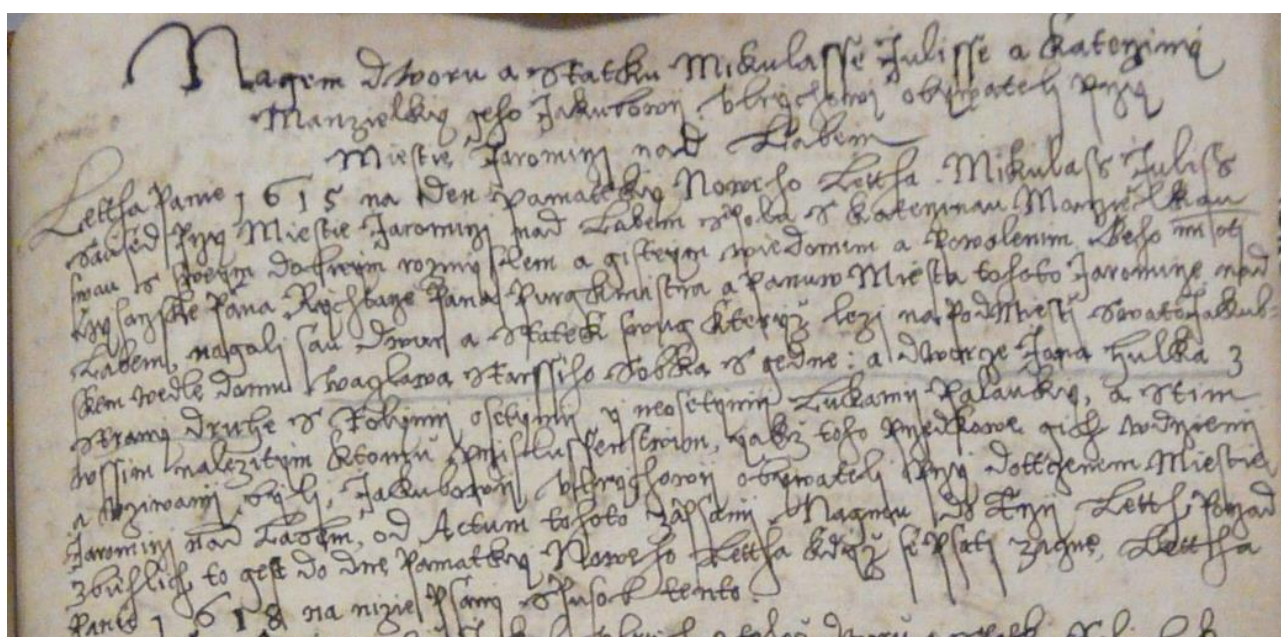 Nagem dworu a Statku Mikulasse Julisse a Kateržiny
Manzielky geho Jakubowi Vlrychowi obywateli Przy
Miestie Jaromirzi nad Labem
Lettha Panie 1615 na den Pamatky Noweho Lettha Mikulass Juliss
Saused Przy Miestie Jaromirzi nad Labem Spolu S Kateržinau Manzielkau
swau S swym dobrym rozmyslem a gistym wiedomim a Powolenim Geho
Pana Rychtarze Pana Purgkmistra a Panuw Miesta tohoto Jaromirze nad
Labem, nagali sau dwur a Statek swug kteryž lezi na Podmiesti Swatojakub-
skem wedle domu Waglawa Starssiho Sobka S gedne: a dworze Jana Hulka z
Strany druhe S Rolymi osetymi y neosetymi Lukami Palauky, a Stim
wssim nalezitym ktomu Przislussenstwim, yakz toho Przedkowe gich w drzeni
a vziwani byli, Jakubowi Vlrychowi obywateli Przy dottczenem Miestie
Jaromirzi nad Labem, od Actum tohoto zapsani Nagmu do Trzi Letth Porzad
Zbiehlich, to gest do dne Pamatky Noweho Lettha kdyz se Psati zacne, Lettha
Panie 1618 na nizie Psany Spusob tento.